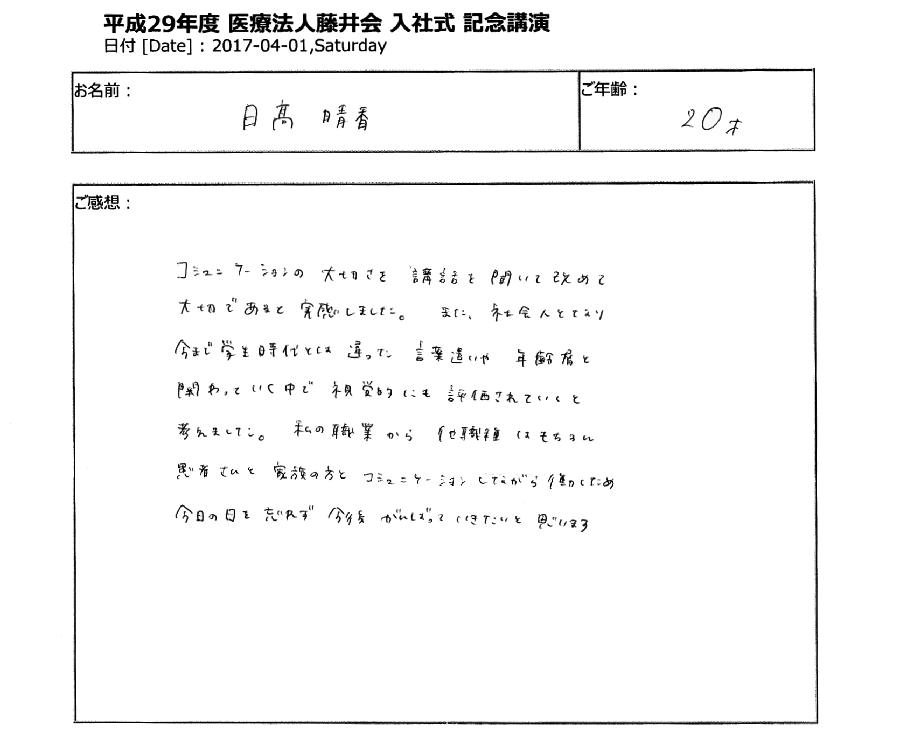 平成29年度 医療法人藤井会 入社式 記念講演
日付 [Date] : 2017-04-01,Saturday
お名前：
日髙 晴香
ご年齢：
20才
ご感想：
コミュニケーションの 大切さを 講話を 聞いて 改めて
大切であると 実感しました。 また、社会人となり
今まで 学生時代とは 違った 言葉遣いや 年齢層と
関わっていく中で 視覚的にも 評価されていくと
考えました。 私の職業から 他職種はもちろん
患者さんと 家族の方と コミュニケーションしながら 働くため
今日の日を 忘れず 今後 がんばって いきたいと 思います